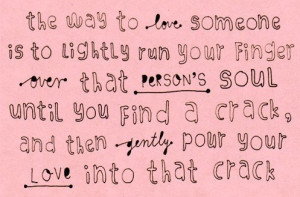 the way to love someone
is to lightly run your finger
over that PERSON'S SOUL
until you find a crack,
and then gently pour your
LOVE into that crack